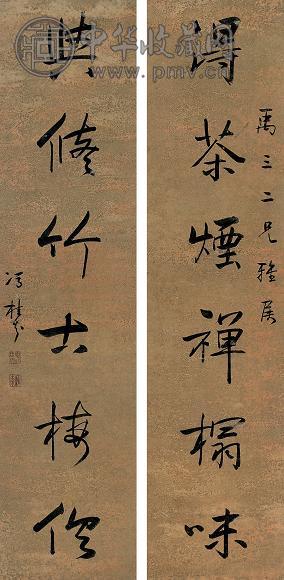 中华收藏网
www.pmv.cn
禹三二兄雅屬
得茶煙禪榻味
共脩竹古梅
馮桂芬